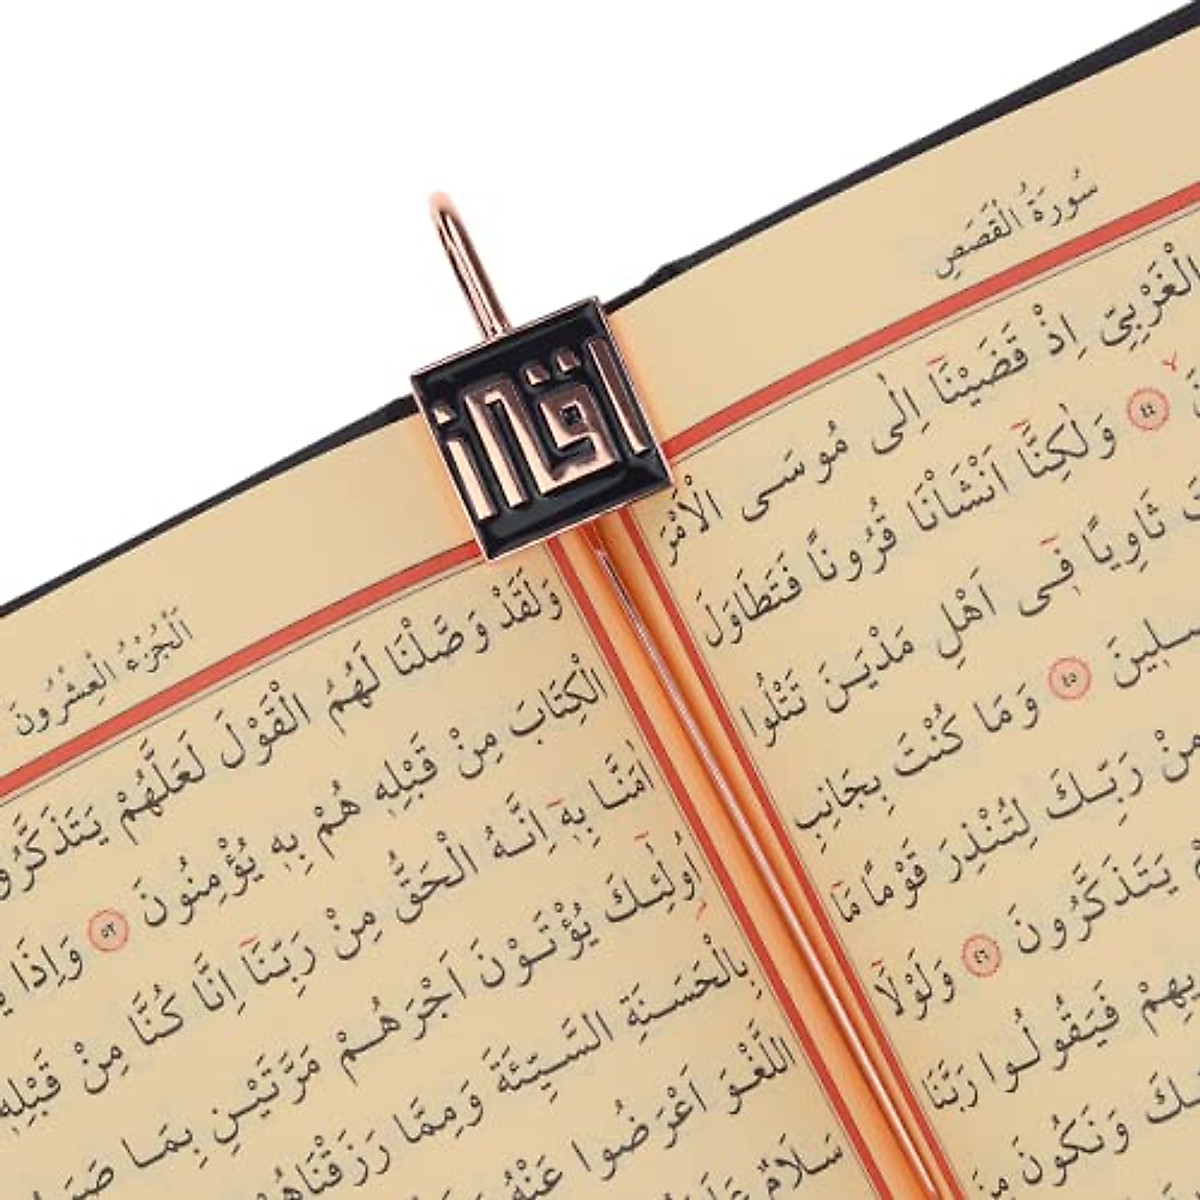 اقرأ
سُورَةُ الْقَصَصِ
الْغَرْبِيِّ اِذْ قَضَيْنَٓا اِلٰى مُوسَى الْاَمْرَ
٤٤ وَلٰكِنَّٓا اَنْشَأْنَا قُرُونًا فَتَطَاوَلَ
ثَاوِيًا فِىٓ اَهْلِ مَدْيَنَ تَتْلُوا
سِلِينَ ٤٥ وَمَا كُنْتَ بِجَانِبِ
مِنْ رَبِّكَ لِتُنْذِرَ قَوْمًا مَٓا
يَتَذَكَّرُونَ ٤٦ وَلَوْلَٓا
يهِمْ فَيَقُولُوا رَبَّنَا
ـكَ وَنَكُونَ مِنَ
اَلْجُزْءُ الْعِشْرُونَ
وَلَقَدْ وَصَّلْنَا لَهُمُ الْقَوْلَ لَعَلَّهُمْ يَتَذَكَّرُو
الْكِتَابَ مِنْ قَبْلِهٖ هُمْ بِهٖ يُؤْمِنُونَ ٥٢ وَاِذَا
اٰمَنَّا بِهٖٓ اِنَّهُ الْحَقُّ مِنْ رَبِّنَٓا اِنَّا كُنَّا مِنْ قَبْلِهٖ
اُولٰٓئِكَ يُؤْتَوْنَ اَجْرَهُمْ مَرَّتَيْنِ بِمَا صَبَ
بِالْحَسَنَةِ السَّيِّئَةَ وَمِمَّا رَزَقْنَاهُ
اللَّغْوَ اَعْرَضُوا عَنْهُ
سَلَامٌ عَلَ